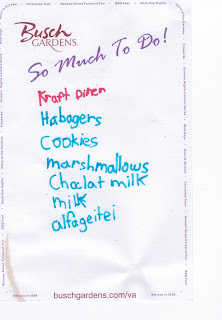 Busch
GARDENS.
So Much To Do!
Kraft dinen
Habagers
Cookies
marshmallows
Choclat milk
milk
alfageitei
buschgardens.com/va